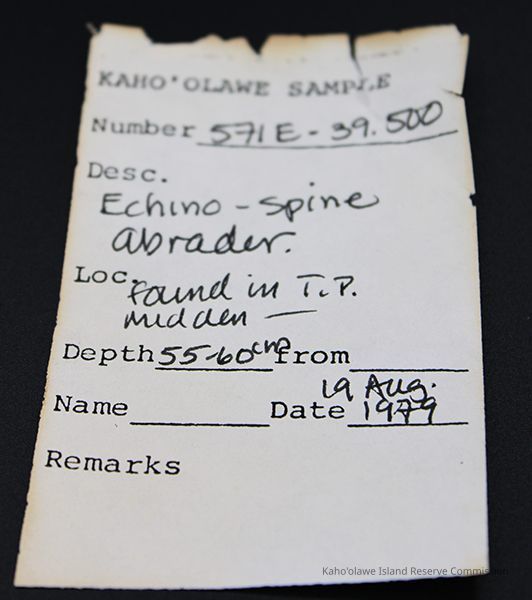 KAHO'OLAWE SAMPLE
Number 571E-39.500
Desc.
Echino-spine
abrader.
Loc. found in T.P.
midden —
Depth 55-60cm from
19 Aug.
Name Date 1979
Remarks
Kaho'olawe Island Reserve Commission